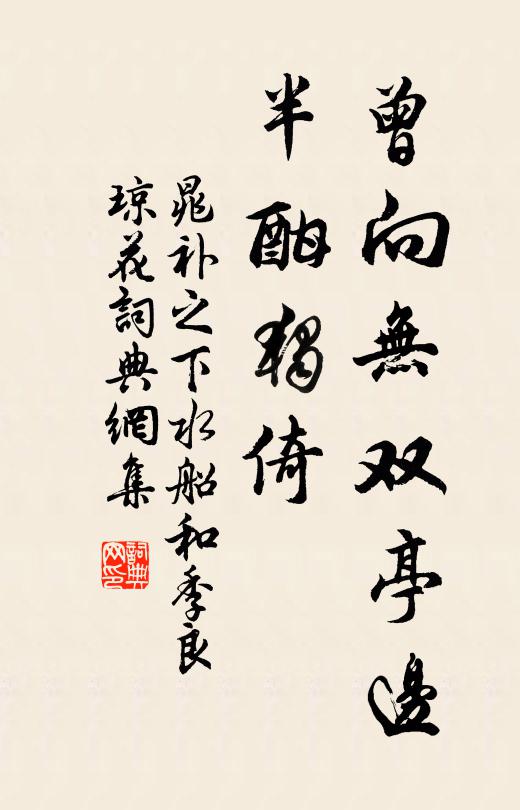 曾向無双亭邊
半酣獨倚
晁补之下水船和季良
琼花詞典網集
詞典
网印